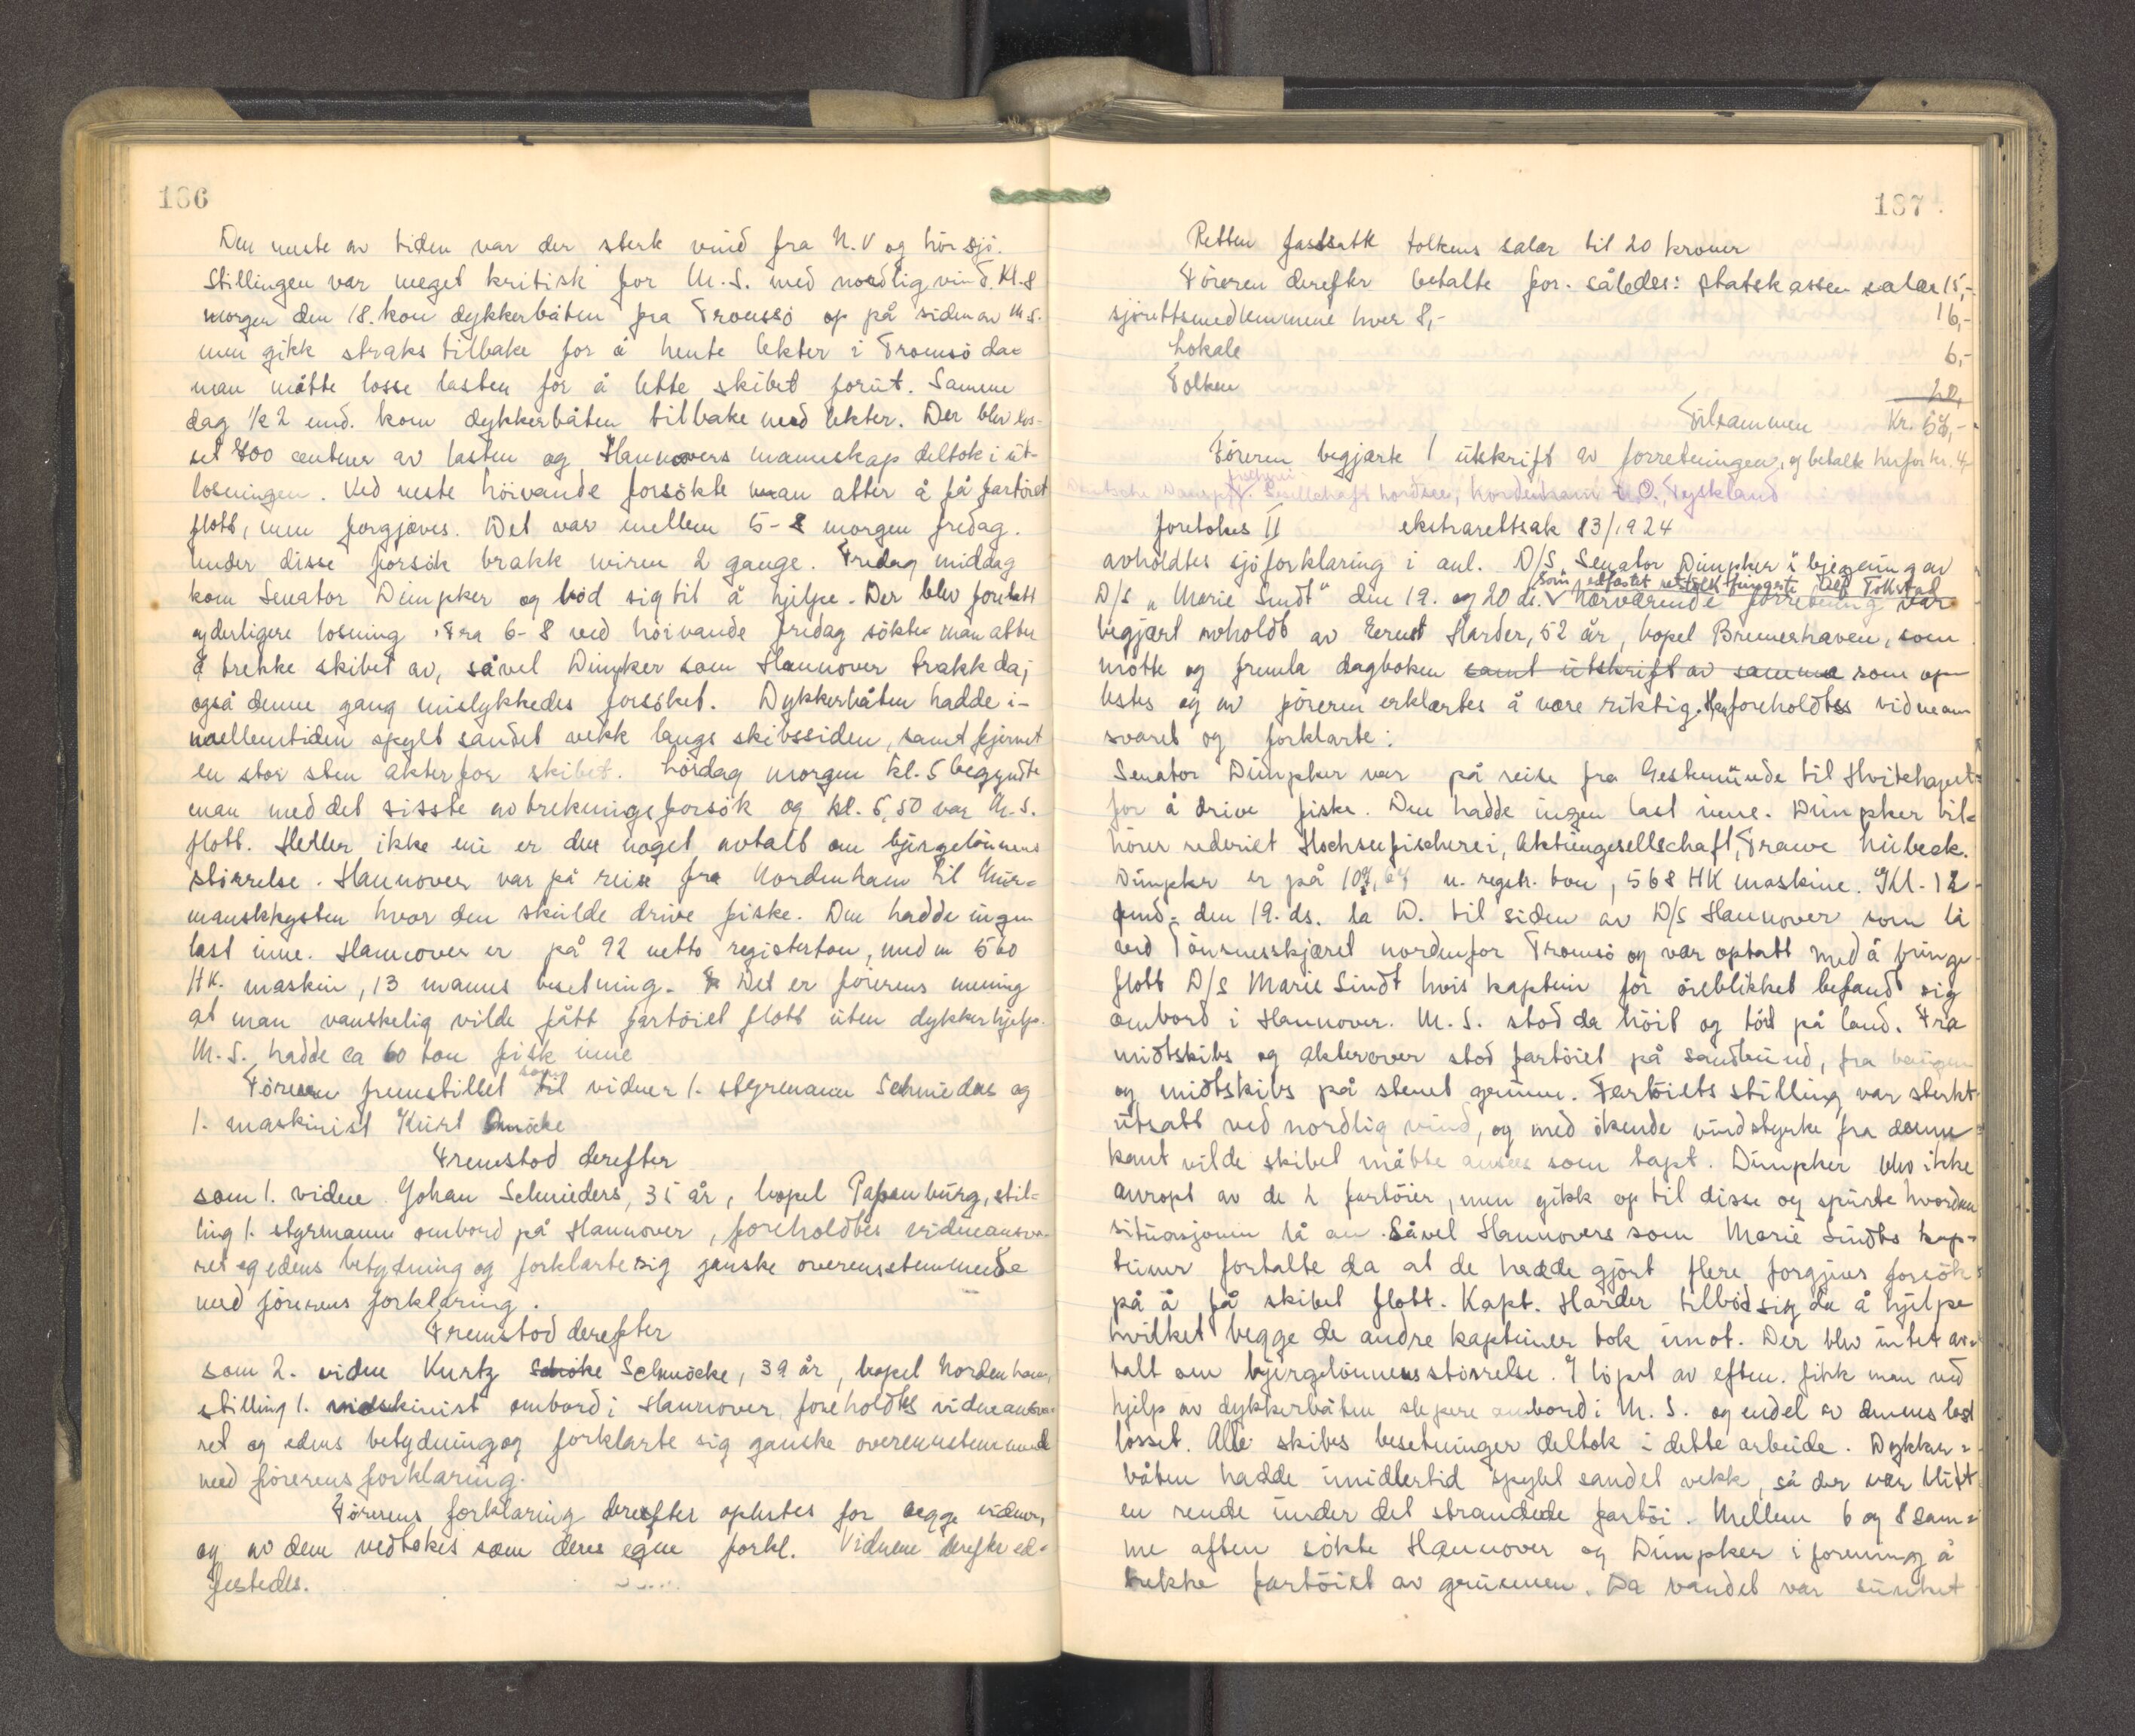 186
Den meste av tiden var der sterk vind fra N.V og hör sjö.
Stillingen var meget kritisk for M.S. med nordlig vind. Kl. 8
morgen den 18. kom dykkerbåten fra Tromsö op på siden av M.S.
men gikk straks tilbake for å hente lekter i Tromsö da
man måtte losse lasten for å lette skibet forut. Samme
dag 1/2 2 emd. kom dykkerbåten tilbake med lekter. Der blev los-
set 800 centner av lasten og Hannovers mannskap deltok i ut-
losningen. Ved neste höivande forsökte man atter å få fartöiet
flott, men forgjæves. Det var mellem 5-8 morgen fredag.
Under disse forsök brakk wiren 2 gange. Fredag middag
kom Senator Dimpker og böd sig til å hjelpe. Der blev foretatt
yderligere losning. Fra 6-8 ved höivande fredag sökte man atter
å trekke skibet av, såvel Dimpker som Hannover trakk da;
også denne gang mislykkedes forsöket. Dykkerbåten hadde i-
mellemtiden spylt sandet vekk langs skibssiden, samt fjernet
en stor sten akterfor skibet. Lördag morgen kl. 5 begyndte
man med det sisste avtrekningsforsök og kl. 5,50 var M.S.
flott. Heller ikke nu er der noget avtalt om bjergelönnens
störrelse. Hannover var på reise fra Nordenham til Mur-
manskkysten hvor den skulde drive fiske. Den hadde ingen
last inne. Hannover er på 92 netto registerton, med en 560
HK. maskin, 13 manns besetning. Det er förerens mening
at man vanskelig vilde fått fartöiet flott uten dykkerhjelp.
M.S. hadde ca 60 ton fisk inne
Föreren fremstillet som til vidner 1. styrmann Schmieders og
1. maskinist Kurt Smöcke
Fremstod derefter
som 1. vidne Johan Schmieders, 35 år, bopel Papenburg, stil-
ling 1. styrmann ombord på Hannover, foreholdtes vidneansva-
ret og edens betydning og forklarte sig ganske overensstemmende
med förerens forklaring.
Fremstod derefter
som 2. vidne Kurtz Schmöcke, 39 år, bopel Nordenham,
stilling 1. maskinist ombord i Hannover foreholdtes vidneansva-
ret og edens betydning og forklarte sig ganske overensstemmende
med förerens forklaring.
Förerens forklaring derefter oplestes for begge vidner,
og av dem vedtokes som deres egne forkl. Vidnene derefter ed-
festedes.
187
Retten fastsatte tolkens salær til 20 kroner
Föreren derefter betalte for. således: statskassen salær 15,-
sjörettsmedlemmene hver 8,- 16,-
Lokale 6,-
Tolken 20,
Tilsammen Kr. 57,-
Föreren begjærte 1 utskrift av forretningen, og betalte herfor kr. 4
Deutsche Dampf fischerei Gesellschaft Nordsee, Nordenham i. O., Tyskland
foretokes II ekstrarettsak 83/1924
avholdtes sjöforklaring i anl. D/S „Senator Dimpker“s bjergning av
som edfæstet rettstolk fungerte Delf Tokstad
D/S „Marie Sindt“ den 19. og 20 ds. Nærværende forretning var
begjært avholdt av Ernst Harder, 52 år, bopel Bremerhaven, som
mötte og fremla dagboken samt utskrift av samme som op-
lestes og av föreren erklærtes å være riktig. Han foreholdtes vidnean
svaret og forklarte:
Senator Dimpker var på reise fra Gestemünde til Hvitehavet
for å drive fiske. Den hadde ingen last inne. Dimpker til-
hörer rederiet Hochseefischerei, Aktiengesellschaft, Trawe Lübeck.
Dimpker er på 109,64 n. regstr. ton, 568 HK maskine. Kl. 12
fmd. den 19. ds. la D. til siden av D/S Hannover som lå
ved Tönsnesskjæret nordenfor Tromsö og var optatt med å bringe
flott D/S Marie Sindt hvis kaptein för öieblikket befandt sig
ombord i Hannover. M.S. stod da höit og tört på land. Fra
midtskibs og akterover stod fartöiet på sandbund, fra baugen
og midtskibs på stenet grunn. Fartöiets stilling var sterkt
utsatt ved nordlig vind, og med ökende vindstyrke fra denne
kant vilde skibet måtte ansees som tapt. Dimpker blev ikke
anropt av de 2 fartöier, men gikk op til disse og spurte hvordan
situasjonen lå an. Såvel Hannovers som Marie Sindts kap-
teiner fortalte da at de hadde gjort flere forgjæves forsök
på å få skibet flott. Kapt. Harder tilböd sig da å hjelpe
hvilket begge de andre kapteiner tok imot. Der blev intet av-
talt om bjergelönnens störrelse. I löpet av eftm. fikk man ved
hjelp av dykkerbåten slepere ombord i M.S. og endel av dennes last
losset. Alle skibes besetninger deltok i dette arbeide. Dykker-
båten hadde imidlertid spylet sandet vekk, så der var blidt
en rende under det strandede fartöi. Mellem 6 og 8 sam-
me aften sökte Hannover og Dimpker i forening å
trekke fartöiet av grunnen. Da vandet var sunket